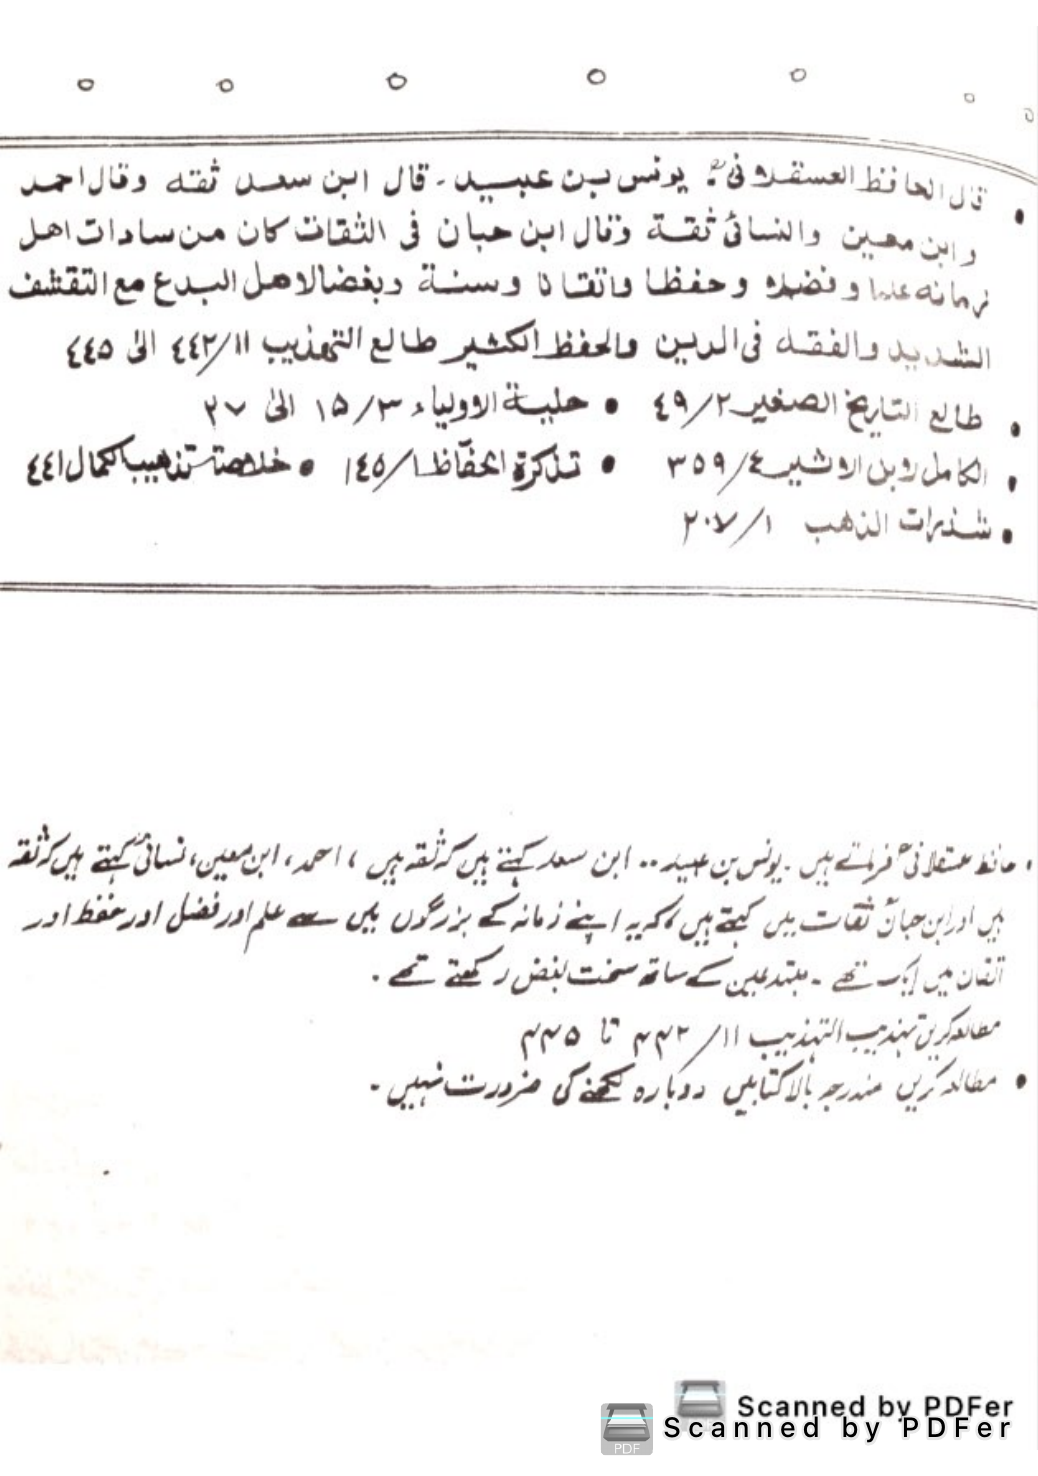 • قال الحافظ العسقلانیؒ: یونس بن عبید۔ قال ابن سعد ثقه وقال احمد
وابن معین والنسائی ثقة وقال ابن حبان فی الثقات کان من سادات اهل
زمانه علما و فضلا و حفظا واتقانا وسنة وبغضا لاهل البدع مع التقشف
الشدید والفقه فی الدین والحفظ الکثیر طالع التهذیب ١١/٤٤٢ الی ٤٤٥
• طالع التاریخ الصغیر ٢/٤٩ • حلیة الاولیاء ٣/١٥ الی ٢٧
• الکامل لابن الاثیر ٤/٣٥٩ • تذکرة الحفاظ ١/١٤٥ • خلاصة تذهیب الکمال ٤٤١
• شذرات الذهب ١/٢٠٧
• حافظ عسقلانیؒ فرماتے ہیں ۔ یونس بن عبید ۔۔ ابن سعد کہتے ہیں کہ ثقہ ہیں ، احمد، ابن معین، نسائیؒ کہتے ہیں کہ ثقہ
ہیں اور ابن حبانؒ ثقات میں کہتے ہیں کہ یہ اپنے زمانہ کے بزرگوں میں سے علم اور فضل اور حفظ اور
اتقان میں ایک تھے ۔ مبتدعین کے ساتھ سخت بغض رکھتے تھے ۔
مطالعہ کریں تہذیب التہذیب ١١/ ۴۴۲ تا ۴۴۵
• مطالعہ کریں مندرجہ بالا کتابیں دوبارہ لکھنے کی ضرورت نہیں ۔
Scanned by PDFer
Scanned by PDFer
PDF